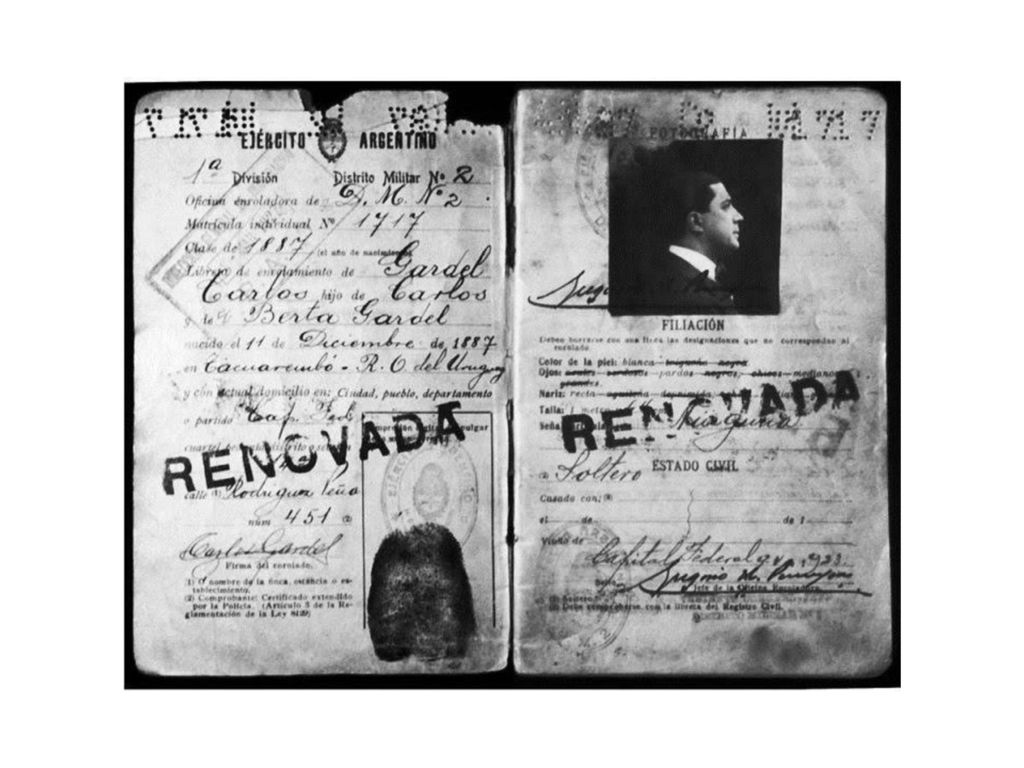 EJÉRCITO ARGENTINO
1ª División Distrito Militar Nº 2
Oficina enroladora de D. M. Nº 2
Matrícula individual Nº 1717
Clase de 1887 (el año de nacimiento)
Libreta de enrolamiento de Gardel
Carlos hijo de Carlos
y de Berta Gardel
nacido el 11 de Diciembre de 1887
en Tacuarembó - R. O. del Uruguay
y con actual domicilio en: Ciudad, pueblo, departamento
o partido Cap. Fed.
RENOVADA
calle (1) Rodriguez Peña
núm 451
Carlos Gardel
Firma del enrolado.
(1) O nombre de la finca, estancia o es-
tablecimiento.
(2) Comprobante: Certificado extendido
por la Policía. (Artículo 3 de la Re-
glamentación de la Ley 8129)
FOTOGRAFÍA
FILIACIÓN
Deben borrarse con una línea las designaciones que no correspondan al
enrolado.
Color de la piel: blanca trigueña negra
Ojos: azules pardos negros, chicos medianos
grandes.
Nariz: recta aguileña
Talla: 1 metro
RENOVADA
Ninguna
ESTADO CIVIL
Soltero
Casado con:
el de de 1
Viudo de
Capital Federal 923
Jefe de la Oficina Enroladora.
(2) Debe comprobarse con la libreta del Registro Civil.